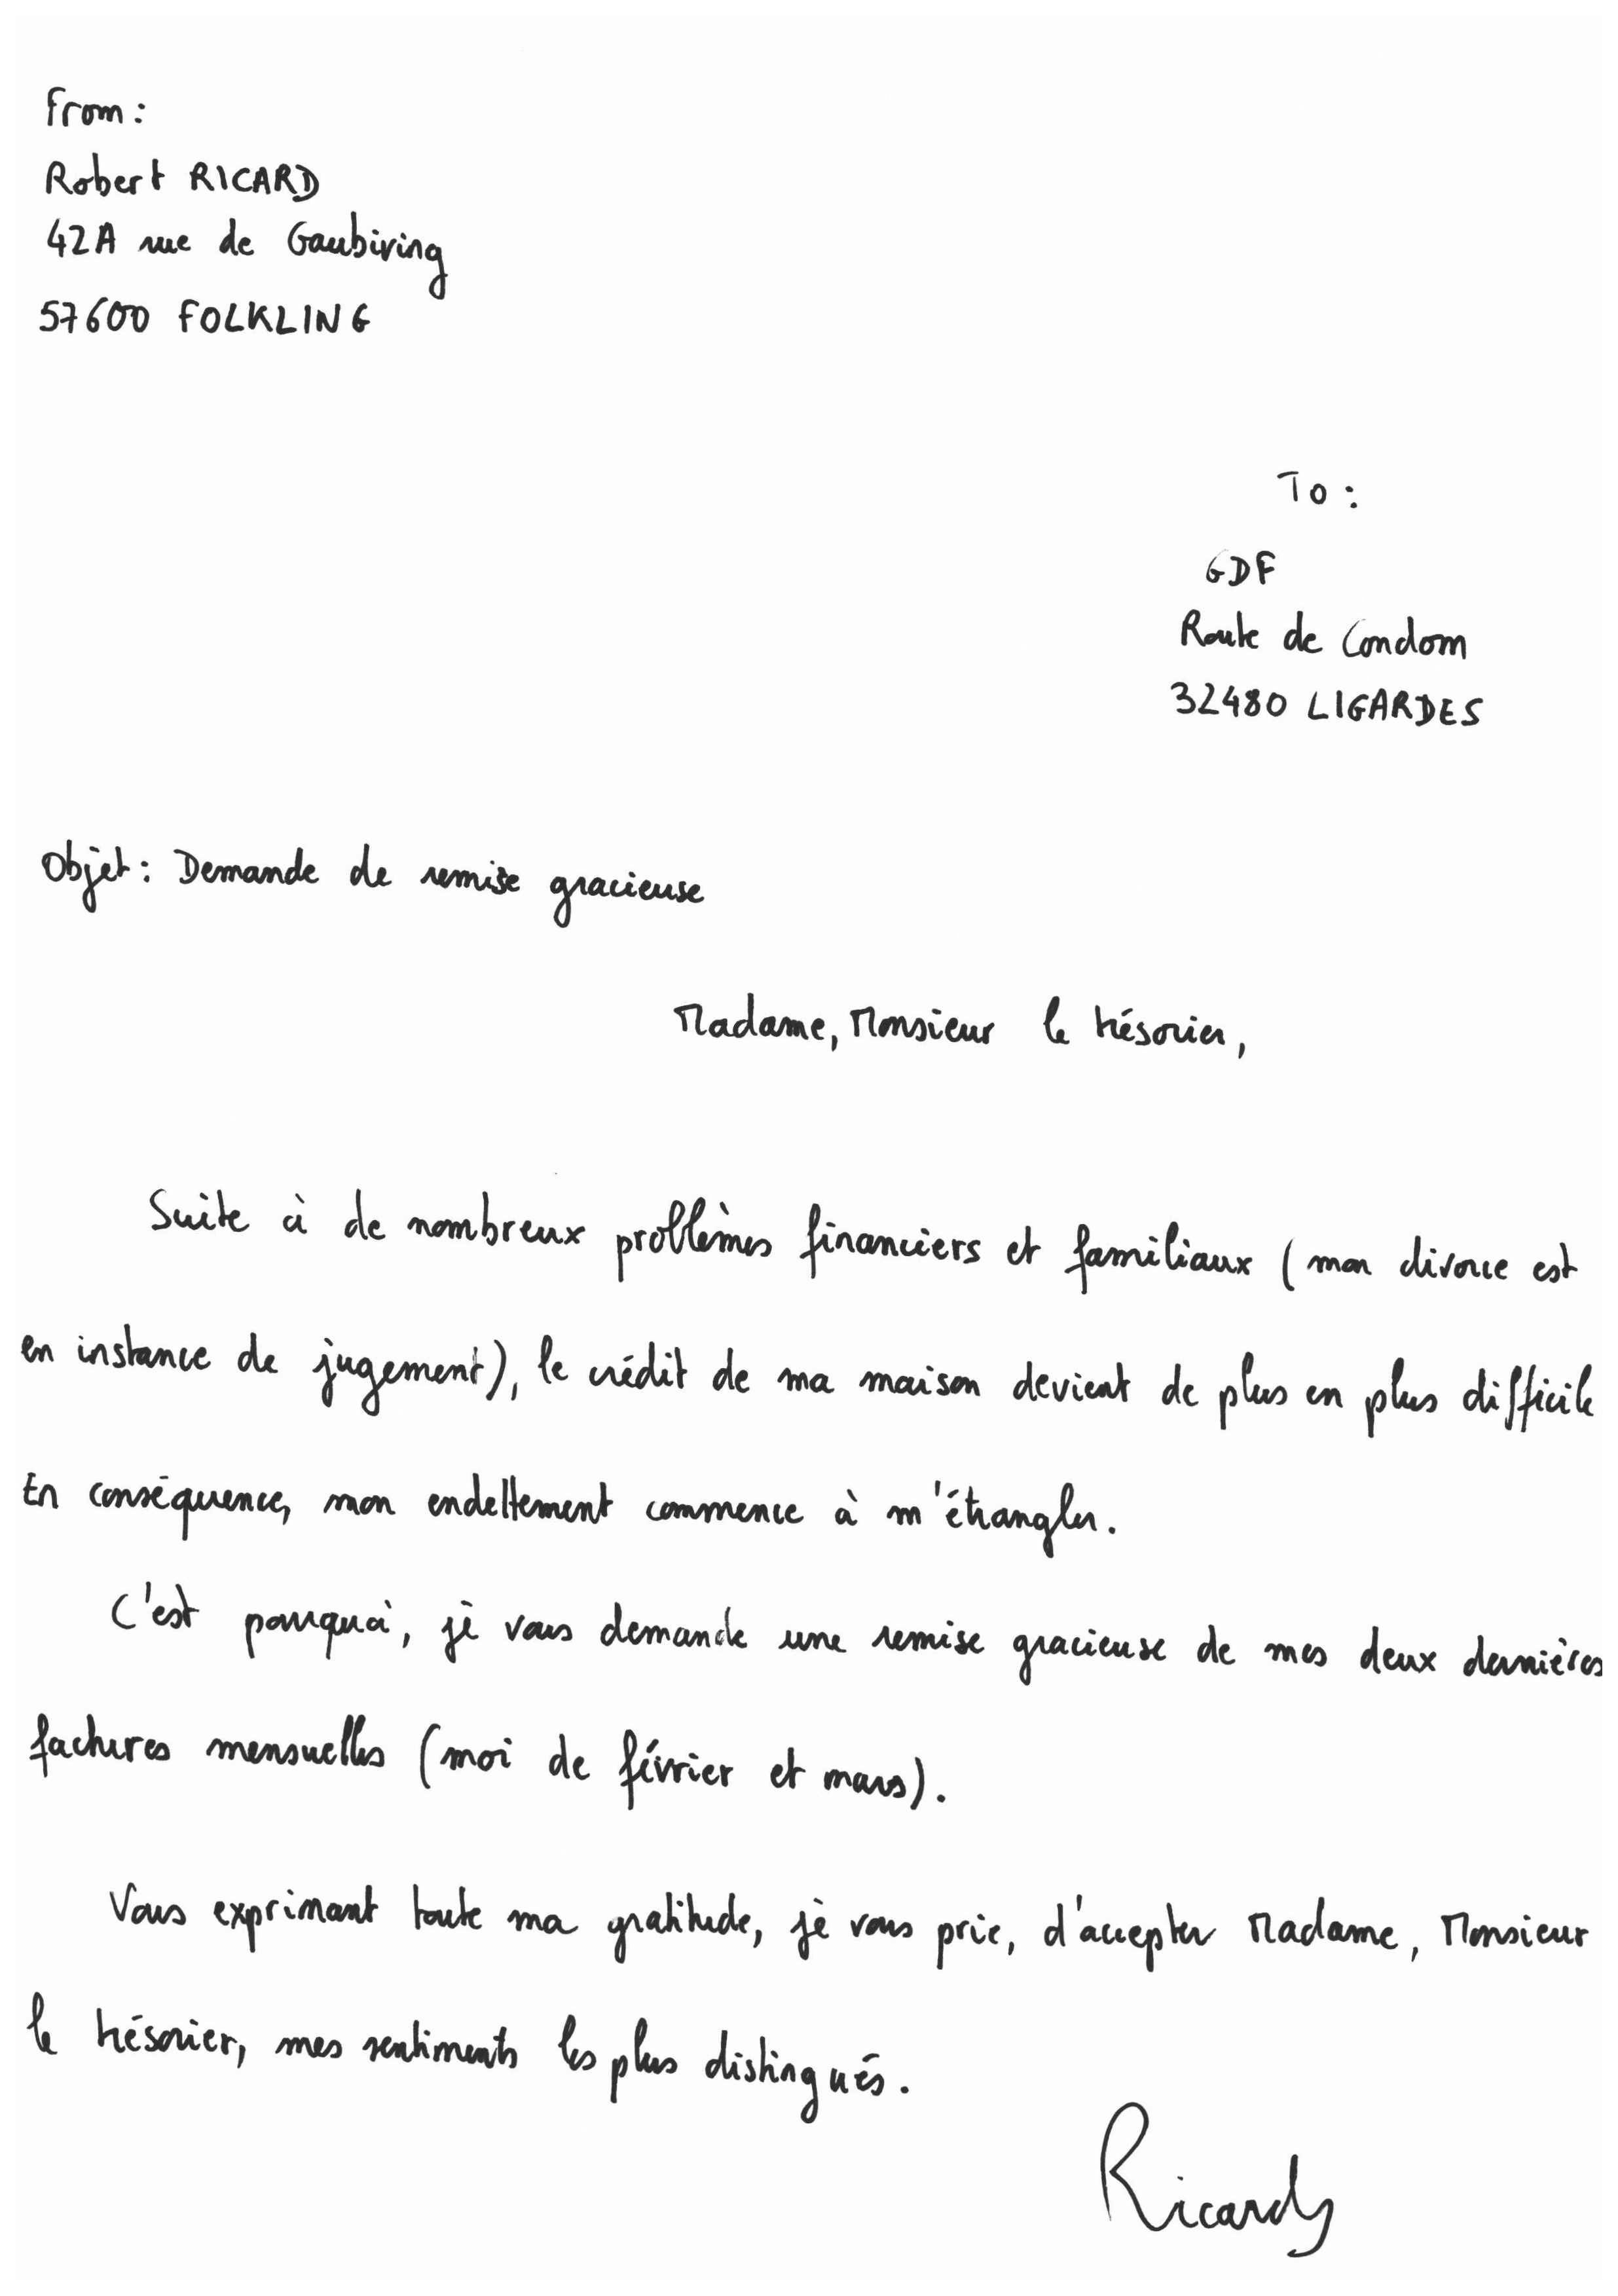 From:
Robert RICARD
42A rue de Gaubiving
57600 FOLKLING
To:
GDF
Route de Condom
32480 LIGARDES
Objet: Demande de remise gracieuse
Madame, Monsieur le trésorier,
Suite à de nombreux problèmes financiers et familiaux (mon divorce est
en instance de jugement), le crédit de ma maison devient de plus en plus difficile
En conséquence, mon endettement commence à m'étrangler.
C'est pourquoi, je vous demande une remise gracieuse de mes deux dernières
factures mensuelles (moi de février et mars).
Vous exprimant toute ma gratitude, je vous prie, d'accepter Madame, Monsieur
le trésorier, mes sentiments les plus distingués.
Ricard